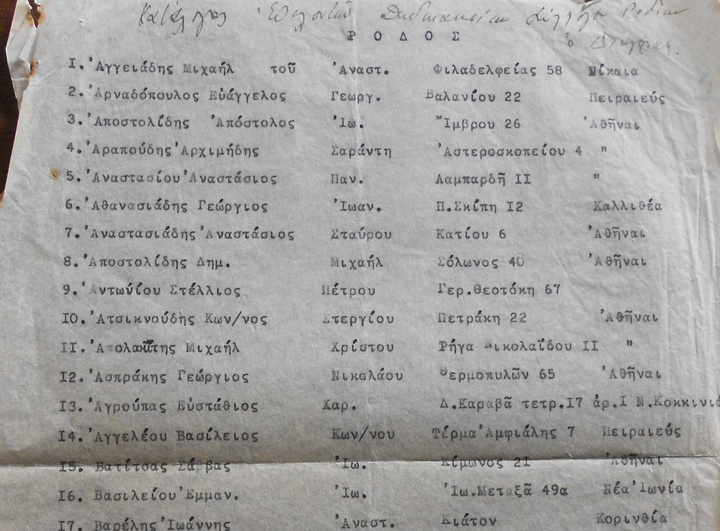 Κατάλογος Ἐθελοντῶν Δωδεκανησίων Ροδίων
ΡΟΔΟΣ
1. Ἀγγειάδης Μιχαήλ τοῦ Ἀναστ. Φιλαδελφείας 58 Νίκαια
2. Ἀρναδόπουλος Εὐάγγελος Γεωργ. Βαλανίου 22 Πειραιεύς
3. Ἀποστολίδης Ἀπόστολος Ἰω. Ἴμβρου 26 Ἀθῆναι
4. Ἀραπούδης Ἀρχιμήδης Σαράντη Ἀστεροσκοπείου 4 "
5. Ἀναστασίου Ἀναστάσιος Παν. Λαμπαρδῆ II "
6. Ἀθανασιάδης Γεώργιος Ἰωαν. Π.Σκίπη I2 Καλλιθέα
7. Ἀναστασιάδης Ἀναστάσιος Σταύρου Κατίου 6 Ἀθῆναι
8. Ἀποστολίδης Δημ. Μιχαήλ Σόλωνος 40 Ἀθῆναι
9. Ἀντωνίου Στέλλιος Πέτρου Γερ.Θεοτόκη 67
IO. Ἀτσικνούδης Κων/νος Στεργίου Πετράκη 22 Ἀθῆναι
II. Μιχαήλ Χρίστου Ρήγα Νικολαΐδου II "
I2. Ἀσπράκης Γεώργιος Νικολάου Θερμοπυλῶν 65 Ἀθῆναι
I3. Ἀγρούπας Εὐστάθιος Χαρ. Δ.Καραβᾶ τετρ.I7 ἀρ.I Ν.Κοκκινιά
I4. Ἀγγελέου Βασίλειος Κων/νου Τέρμα Ἀμφιάλης 7 Πειραιεύς
I5. Βατίτσας Σάββας Ἰω. Κίμωνος 2I Ἀθῆναι
I6. Βασιλείου Ἐμμαν. Ἰω. Ἰω.Μεταξᾶ 49α Νέα Ἰωνία
I7. Βαρέλης Ἰωάννης Ἀναστ. Κιάτον Κορινθία